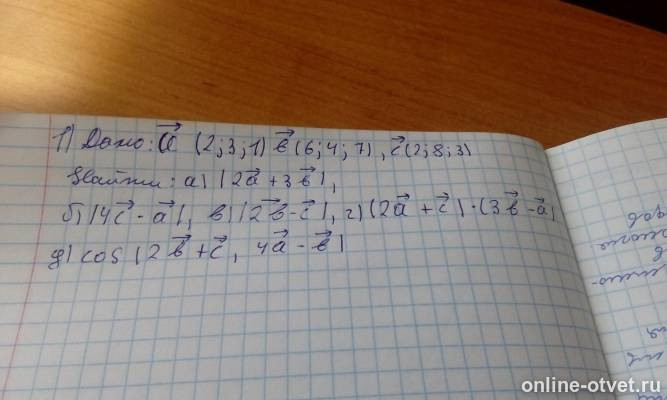 1) Дано: a⃗ (2; 3; 1) b⃗ (6; 4; 7), c⃗ (2; 8; 3)
Найти: а) |2a⃗ + 3b⃗|,
б) |4c⃗ - a⃗|, в) |2b⃗ - c⃗|, г) (2a⃗ + c⃗) · (3b⃗ - a⃗)
д) cos (2b⃗ + c⃗, 4a⃗ - b⃗)
online-otvet.ru